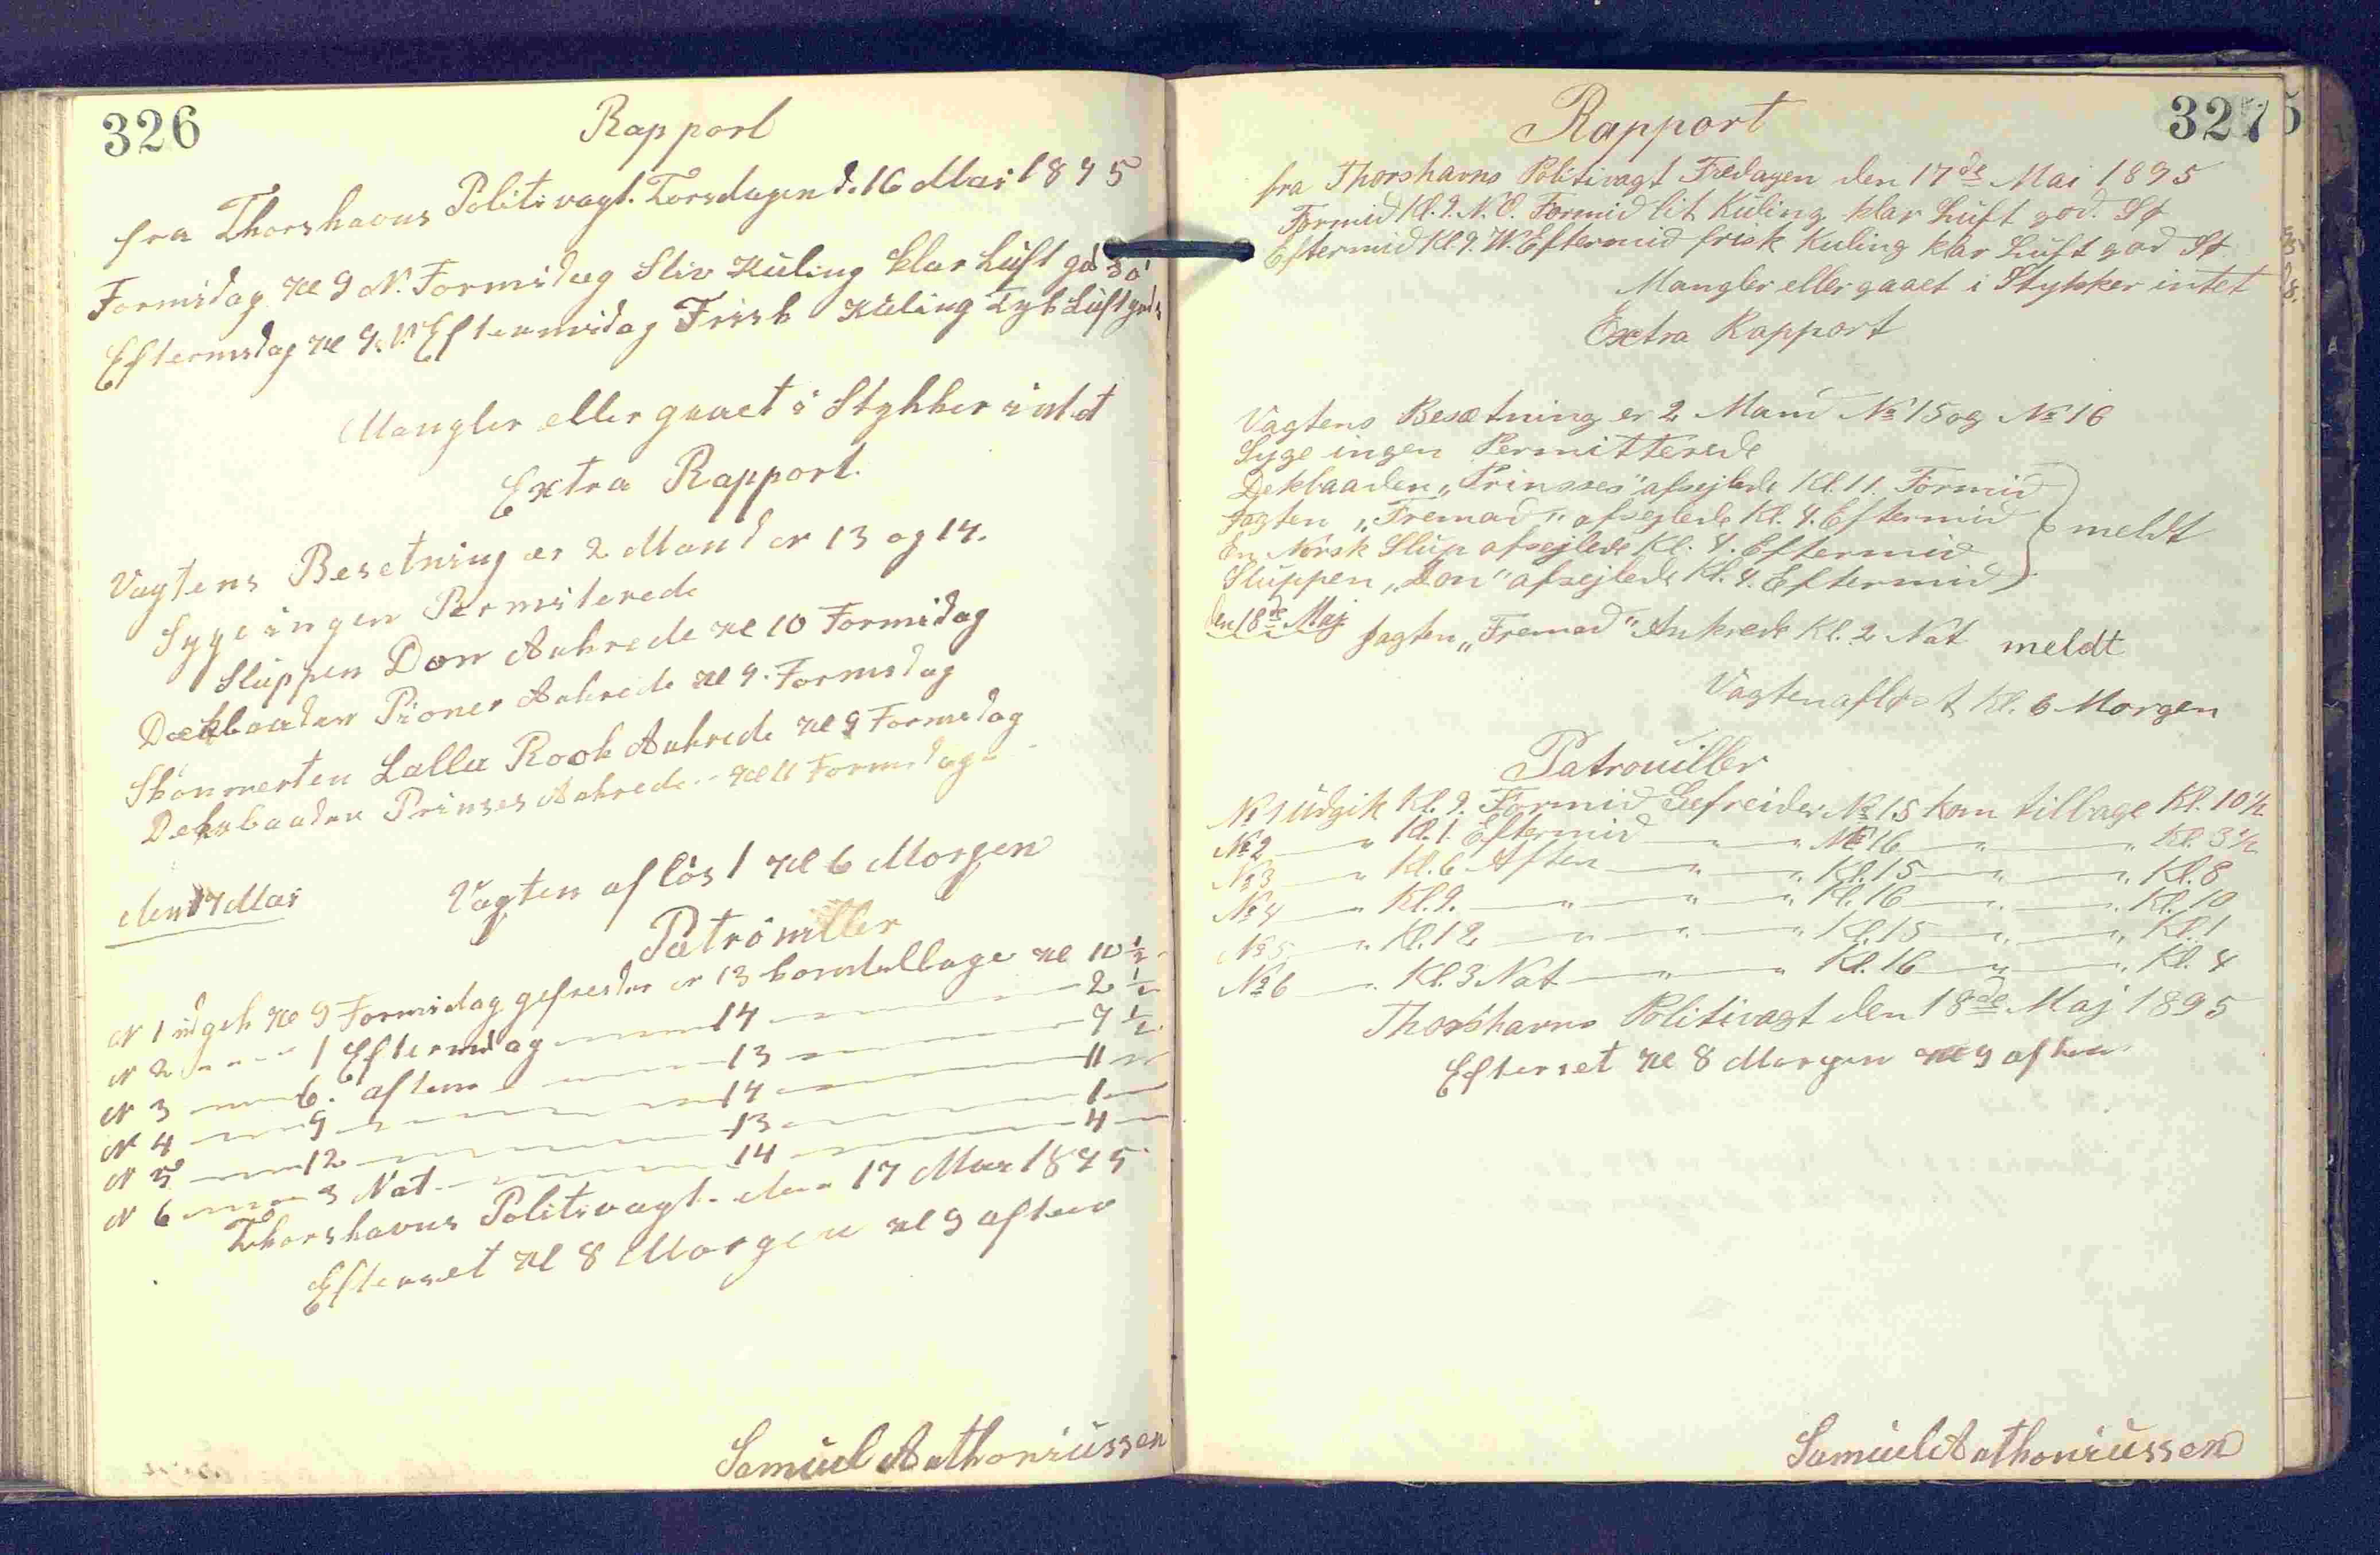 326
Rapport
fra Thorshavns Politivagt. Torsdagen d. 16 Mai 1895
Formidag Kl 9 N. Formidag Stiv Küling klar Lüft god
Eftermidag Kl 9. V. Eftermidag Frisk Küling Tyk Lüft god
Mangler eller gaaet i Stykker intet
Extra Rapport.
Vagtens Besetning er 2 Mand er 13 og 14.
Syge ingen Permiterede
Slüppen Don Ankrede Kl 10 Formidag
Dækbaaden Pioner Ankrede Kl 9. Formidag
Skonnerten Lalla Rook Ankrede Kl 9 Formidag
Dekbaaden Prinses Ankrede Kl 11 Formidag
den 17 Mai
Vagten afløst Kl 6 Morgen
Patroüiller
N 1 üdgik Kl 9 Formidag gefreider N 13 kom tilbage Kl 10 ½
N 2 — 1 Eftermidag — 14 — 2 ½
N 3 — 6. aften — 13 — 7 ½
N 4 — 9 — 14 — 11
N 5 — 12 — 13 — 1
N 6 — 3 Nat — 14 — 4
Thorshavns Politivagt den 17 Mai 1895
Efterset Kl 8 Morgen Kl 9 aften
Samüel Anthoniüssen
327
Rapport
fra Thorshavns Politivagt Fredagen den 17de Mai 1895
Formid Kl. 9. N. O. Formid lit Küling klar Lüft god. St
Eftermid Kl. 9. W. Eftermid frisk Kuling klar Lüft god St
Mangler eller gaaet i Stykker intet
Extra Rapport
Vagtens Besætning er 2 Mand No 15 og No 16
Syge ingen Permitterede
Dekbaaden „Prinsses" afsejlede Kl. 11. Formid
Jagten „Fremad" afsejlede Kl. 4. Eftermid
En Norsk Slup afsejlede Kl. 4. Eftermid
meldt
Sluppen „Don" afsejlede Kl. 4. Eftermid
den 18de Maj
Jagten „Fremad" Ankrede Kl. 2 Nat meldt
Vagten afløst Kl. 6 Morgen
Patroüiller
No 1 üdgik Kl. 9. Formid Gefreider No 15 kom tilbage Kl. 10½
No 2 — „ Kl. 1. Eftermid — „ — „ No 16 — „ — „ Kl. 3½
No 3 — „ Kl. 6 Aften — „ — „ Kl. 15 — „ — „ Kl. 8
No 4 — „ Kl. 9. — „ — „ — „ Kl. 16 — „ — „ Kl. 10
No 5 — „ Kl. 12 — „ — „ — „ Kl. 15 — „ — „ Kl. 1
No 6 — „ Kl. 3 Nat — „ — „ Kl. 16 — „ — „ Kl. 4
Thorshavns Politivagt den 18de Maj 1895
Efterset Kl 8 Morgen Kl 9 aften
Samüel Anthoniüssen